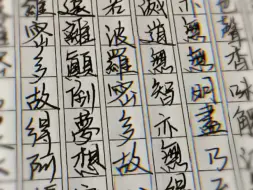 聲香味觸
亦無無明盡乃
滅道無智亦無
若波羅蜜多故
遠離顛倒夢想
羅蜜多故得阿